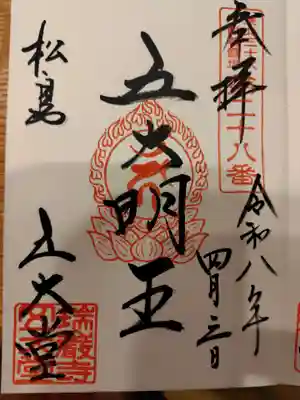 奉拝
令和八年
四月三日
五大明王
松島
五大堂
瑞巌寺